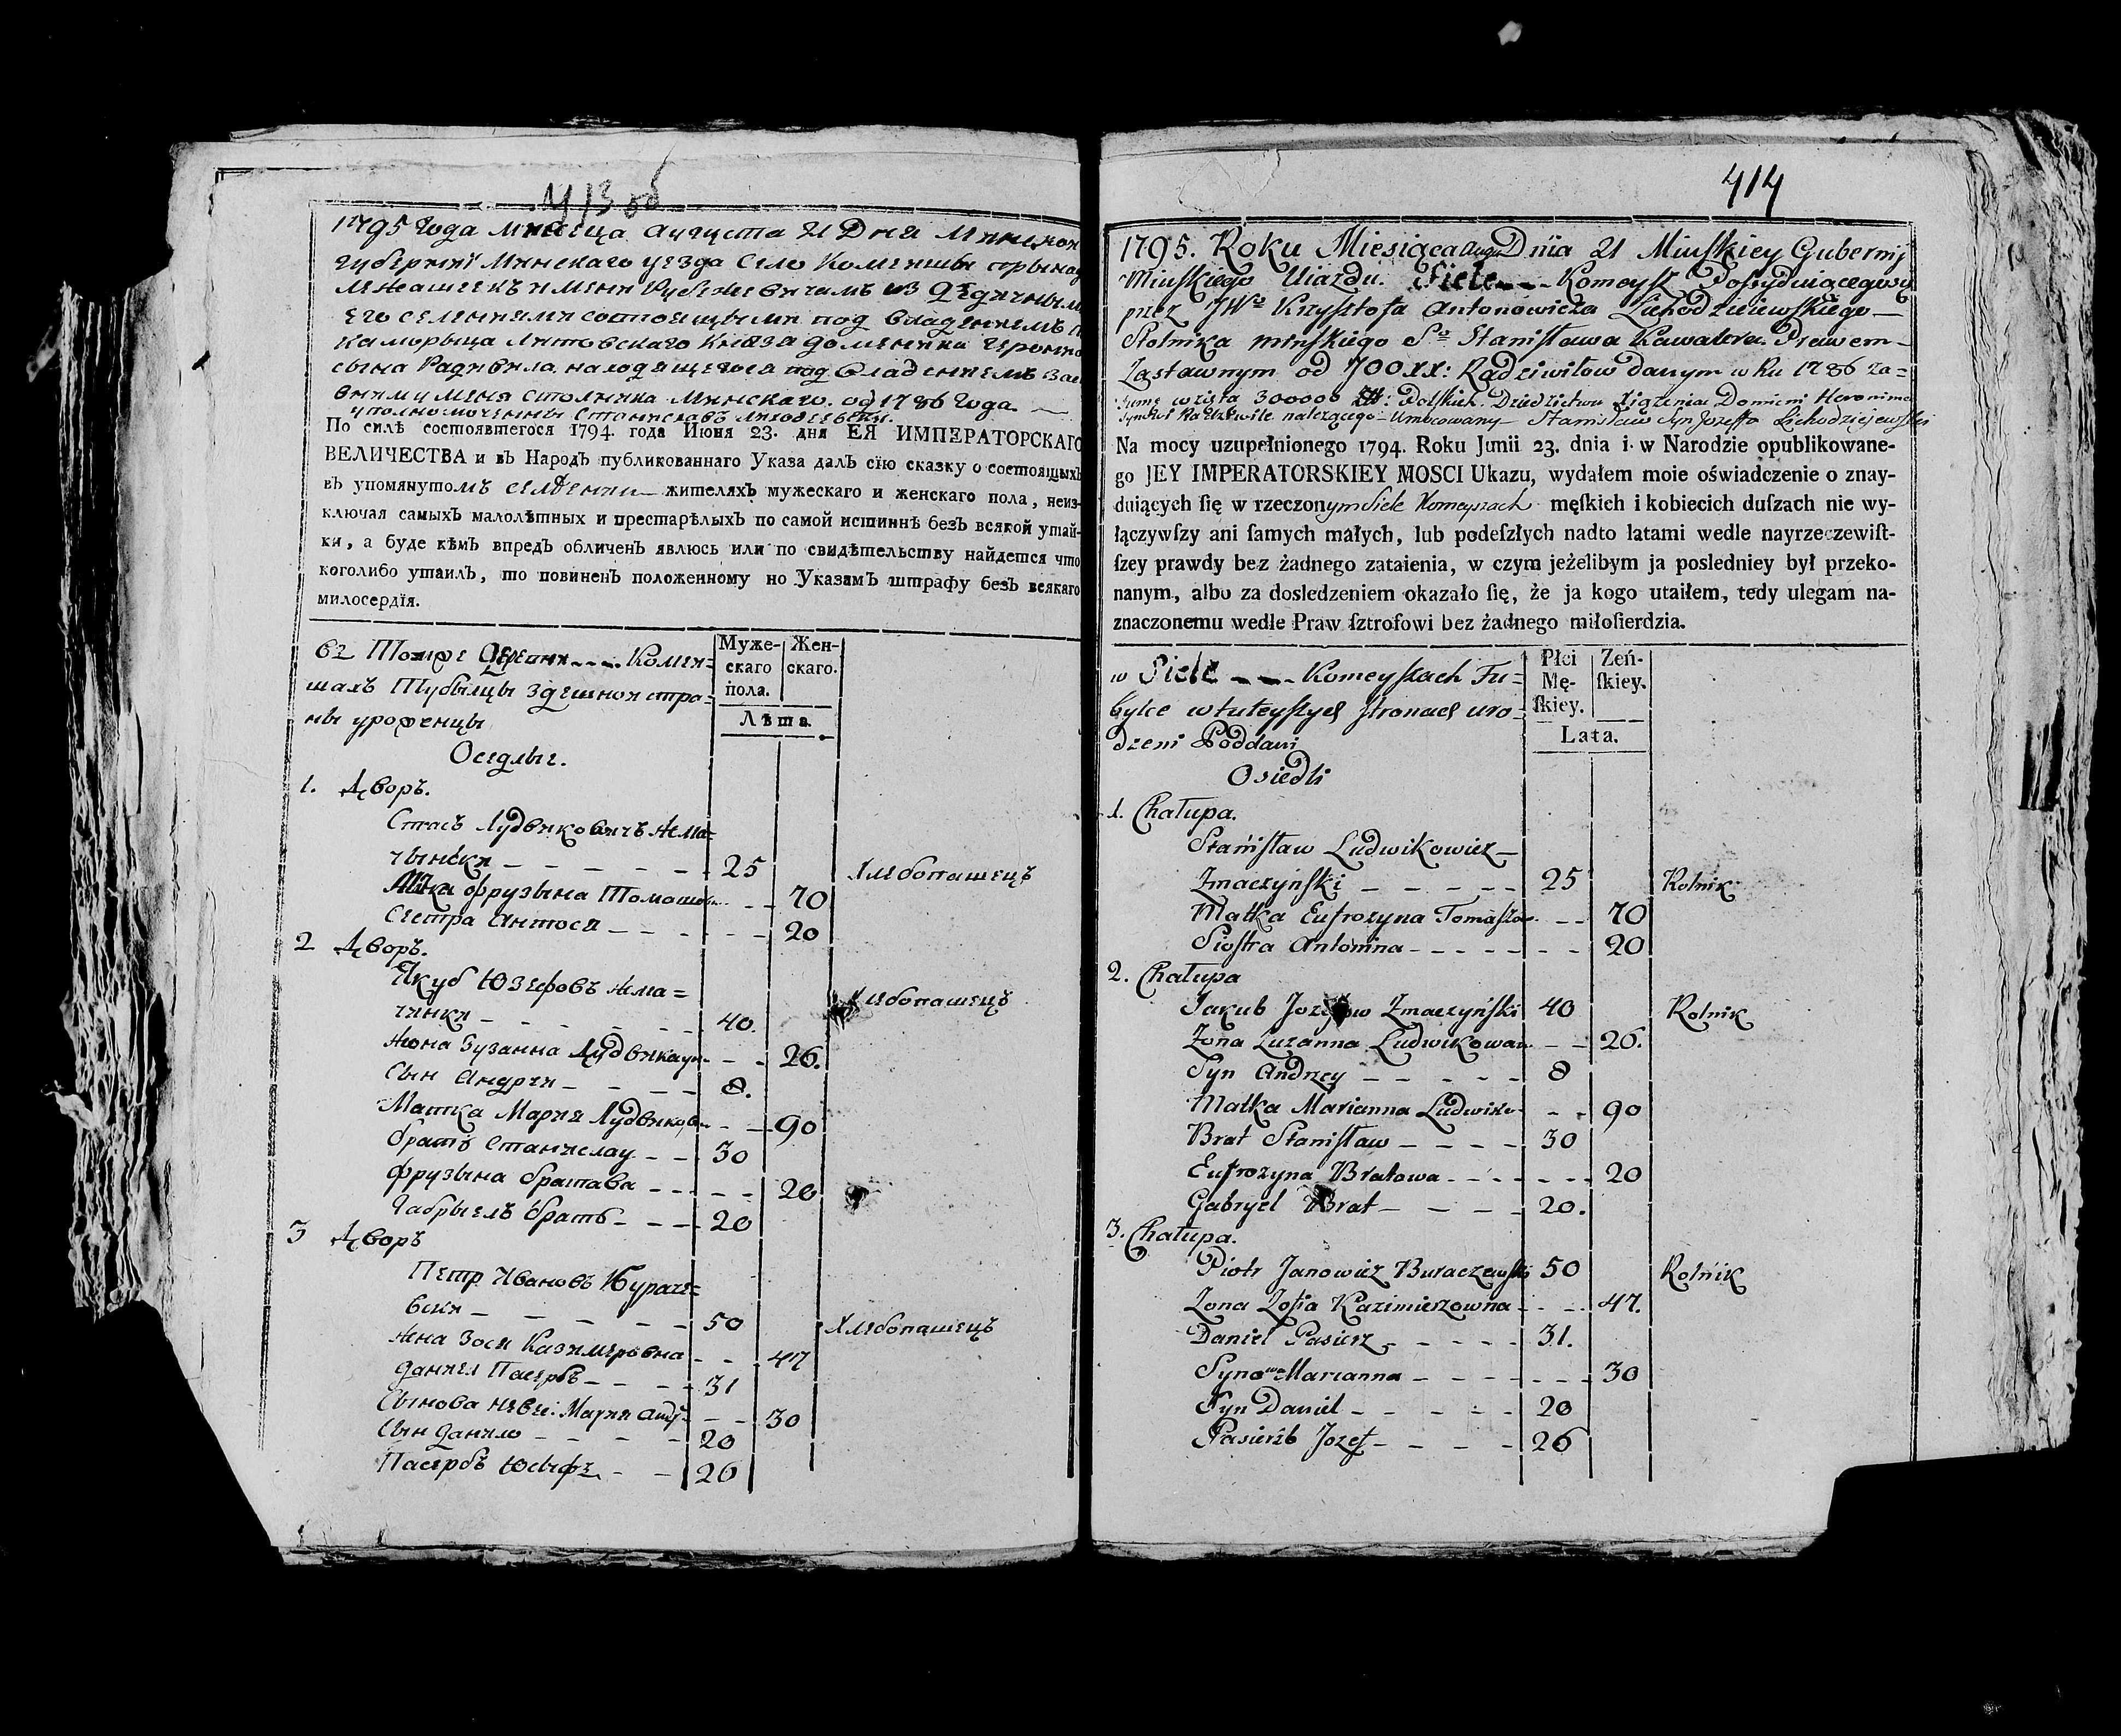 413 об
1795 Года Месеца Августа 21 Дня Минской
Губернии Минскаго уезда Село Комейши
его селениями состоящыми под владением
каморыца Литовскаго Князя доменика
сына Радивила находящегося под владением
столника Минскаго. од 1786 Года.
уполномоченны Станиславъ Лиходзеевски.
По силѣ состоявшегося 1794. года Июня 23. дня ЕЯ ИМПЕРАТОРСКАГО
ВЕЛИЧЕСТВА и въ Народъ публикованнаго Указа далъ сїю сказку о состоящыхъ
въ упомянутомъ селении жителяхъ мужескаго и женскаго пола, неиз-
ключая самыхъ малолѣтных и престарѣлыхъ по самой истиннѣ безъ всякой утай-
ки, а буде кѣмъ впредъ обличенъ явлюсь или по свидѣтельству найдется что
коголибо утаилъ, то повиненъ положенному но Указамъ штрафу безъ всякаго
милосердїя.
въ Томже Комей=
шахъ Тубылцы здешной стро=
ны уроженцы
Оседлые.
Муже-
скаго
пола.
Жен-
скаго.
Лѣта.
1. Дворъ.
Стась Лудвиковичъ Жма=
чынски 25 Хлебопашецъ
Матка Фрузына Томашов 70
Сестра Антося 20
2 Дворъ.
Якуб Юзефовъ Жма=
чински 40. Хлебопашецъ
Жона Зузанна Лудвикаун 26.
Сын Андрей 8.
Матка Мария Лудвиков 90
братъ Станислау 30
Фрузына братава 20
Габрыелъ братъ 20
3 Дворъ
Петр Ивановъ Бураче=
вски 50 Хлебопашецъ
Жена Зося Казимеровна 47
Даниел Пасербъ 31
Сынова Мария 30
Сын Данило 20
Пасербъ Юсыфъ 26
414
1795. Roku Miesiąca Augu Dnia 21 Minſkiey Gubernij
Minſkiego Uiazdu. Siele Komeyſz Poſsyduiącegosię
przez JWo Krzyſztofa Antonowicza Lichodzieiewſkiego
Stolnika minſkiego So Staniſława Kawalera Prawem
Zastawnym od JOOXX: Radziwiłow danym w Ru 1786 za=
Sumę wziętą 300000 Polſkich. Dziedzictwu Xiązenia Domini Heronima
Radziwile nalezącego Umocowany Staniſław Syn Jozeffa Lichodziejewſki
Na mocy uzupełnionego 1794. Roku Junii 23. dnia i w Narodzie opublikowane-
go JEY IMPERATORSKIEY MOSCI Ukazu, wydałem moie oświadczenie o znay-
duiących ſię w rzeczonym Siele Komeyszach męſkich i kobiecich duſzach nie wy-
łączywſzy ani ſamych małych, lub podeſzłych nadto latami wedle nayrzeczewiſt-
ſzey prawdy bez żadnego zataienia, w czym jeżelibym ja posledniey był przeko-
nanym, albo za dosledzeniem okazało ſię, że ja kogo utaiłem, tedy ulegam na-
znaczonemu wedle Praw ſztrofowi bez żadnego miłoſierdzia.
w Siele Komeyſzach Tu=
bylce w tuteyſzych ſtronach uro=
dzeni Poddani
Osiedli
Płci
Mę-
ſkiey.
Zeń-
ſkiey.
Lata.
1. Chałupa.
Staniſław Ludwikowicz
Zmaczyńſki 25 Rolnik
Matka Eufrozyna Tomaſzow 70
Sioſtra Antonina 20
2. Chałupa
Jakub Jozefow Zmaczyńſki 40 Rolnik
Zona Zuzanna Ludwikowan 26.
Syn Andrzey 8
Matka Marianna Ludwiko 90
Brat Staniſław 30
Eufrozyna Bratowa 20
Gabryel Brat 20.
3. Chałupa.
Piotr Janowicz Buraczewſki 50 Rolnik
Zona Zofia Kazimierzowna 47.
Daniel Pasierz 31.
Synowa Marianna 30
Syn Daniel 20
Pasierzb Jozef 26